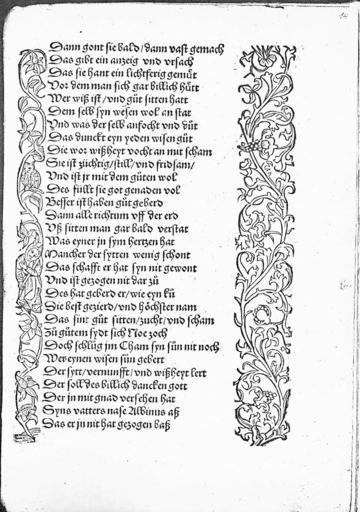 Dann gont sie bald/dann vast gemach
Das gibt ein anzeig vnd vrsach
Das sie hant ein lichtferig gemüt
Vor dem man sich gar billich hütt
Wer wiß ist/vnd güt sitten hatt
Dem selb syn wesen wol an stat
Vnd was der selb anfocht vnd düt
Das dunckt eyn yeden wisen güt
Die wor wißheyt vocht an mit scham
Sie ist züchtig/still/vnd fridsam/
Vnd ist jr mit dem güten wol
Des füllt sie got genaden vol
Besser ist haben güt geberd
Dann alle richtum vff der erd
Vß sitten man gar bald verstat
Was eyner jn sym hertzen hat
Mancher der sytten wenig schont
Das schafft er hat syn nit gewont
Vnd ist gezogen nit dar zü
Des hat geberd er/wie eyn kü
Die best gezierd/vnd höchster nam
Das sint güt sitten/zucht/vnd scham
Zü gütem sydt sich Noe zoch
Doch schlüg jm Cham syn sün nit noch
Wer eynen wisen sün gebert
Der sytt/vernunfft/vnd wißheyt lert
Der soll des billich dancken gott
Der jn mit gnad versehen hat
Syns vatters nase Albinus aß
Das er jn nit hat gezogen baß